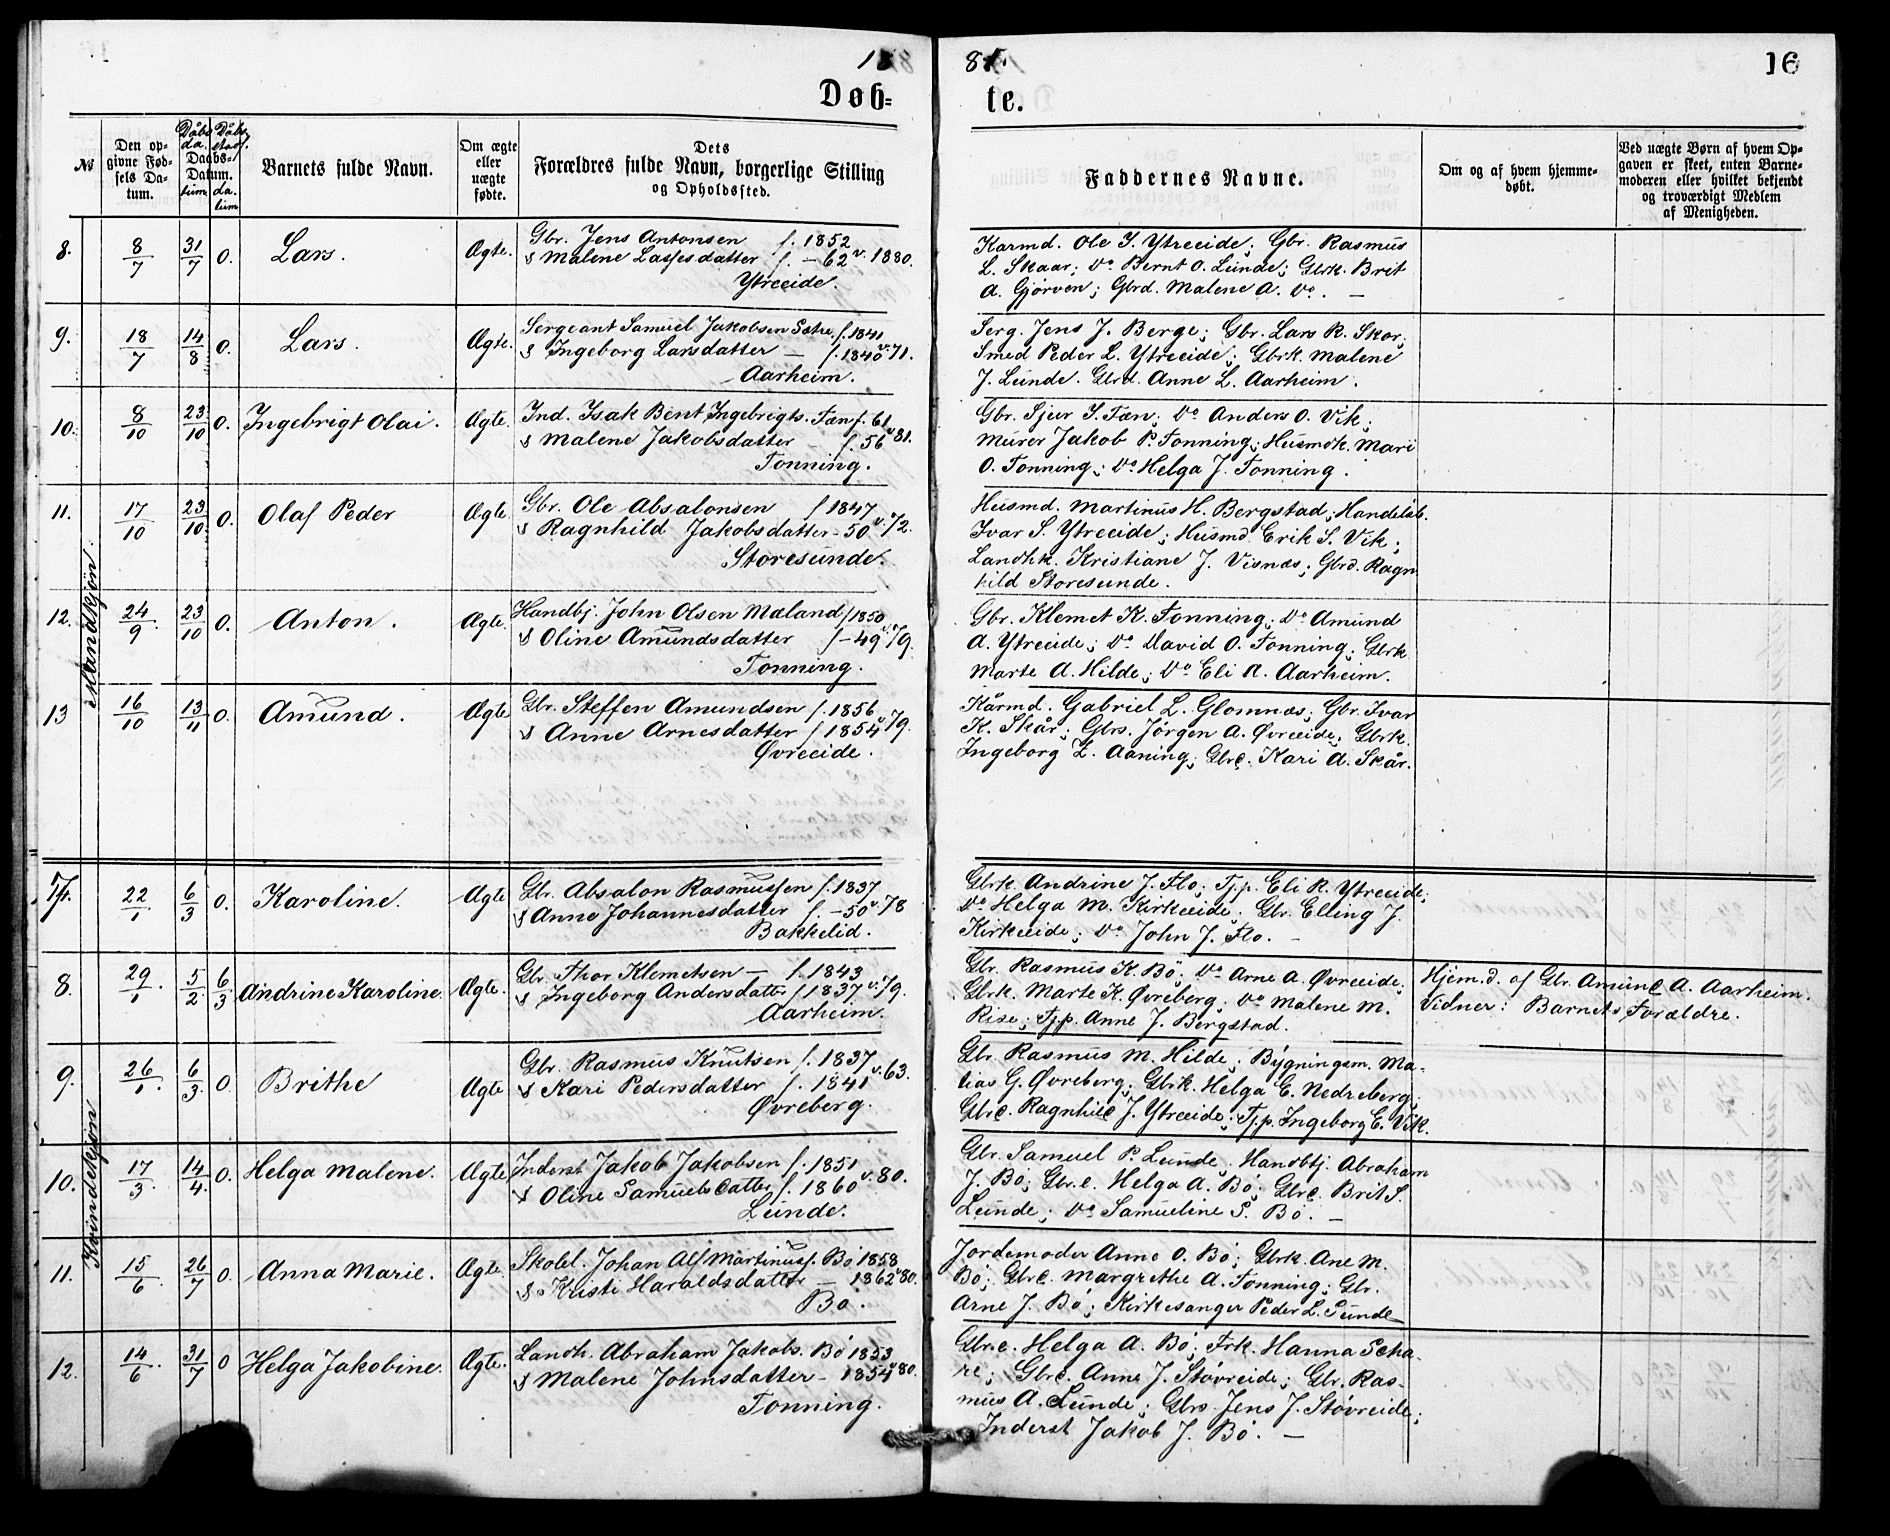 18 81. 16
Døb= te.
№
Den op-
givne Fød-
sels Da-
tum.
Daabs-
Datum.
Barnets fulde Navn.
Om ægte
eller
uægte
fødte.
Dets
Forældres fulde Navn, borgerlige Stilling
og Opholdssted.
Faddernes Navne.
Om og af hvem hjemme-
døbt.
Ved uægte Børn af hvem Op-
gaven er skeet, enten Barne-
moderen eller hvilket bekjendt
og troværdigt Medlem
af Menigheden.
Mandkjøn.
8. 8/7 31/7 0. Lars. Ægte.
Gbr. Jens Antonsen f. 1852
& Malene Lassesdatter f. – 62 v. 1880.
Ytreeide.
Karmd. Ole I. Ytreeide; Gbr. Rasmus
L. Skaar; Do Bernt O. Lunde; Gbrk. Brit
A. Gjørven; Gbrd. Malene A. Do. —
9. 18/7 14/8 0. Lars. Ægte.
Sergeant Samuel Jakobsen Sætre f. 1841
& Ingeborg Larsdatter — f. 1840 v. 71.
Aarheim.
Serg. Jens J. Berge; Gbr. Lars R. Skor;
Smed Peder L. Ytreeide; Gbrk. Malene
J. Lunde. Gbrd. Anne L. Aarheim.
10. 8/10 23/10 0. Ingebrigt Olai. Ægte.
Ind. Isak Bent Ingebrigts. Tæn f. 61
& Malene Jakobsdatter — f. 56 v 81.
Tonning.
Gbr. Sjur I. Tæn; Do Anders O. Vik;
Murer Jakob P. Tonning; Husmdk. Mari
O. Tonning; Do Helga J. Tonning.
11. 17/10 23/10 0. Olaf Peder Ægte.
Gbr. Ole Absalonsen f 1847
& Ragnhild Jakobsdatter – 50 v. 72.
Storesunde.
Husmd. Martinus H. Bergstad; Handelsb.
Ivar S. Ytreeide; Husmd. Erik S. Vik;
Landhk. Kristiane J. Visnæs; Gbrd. Ragn
hild Storesunde.
12. 24/9. 23/10 0. Anton. Ægte.
Handbj. John Olsen Mæland f 1850
& Oline Amundsdatter f – 49 v. 79.
Tonning.
Gbr. Klemet K. Tonning; Do Amund
A. Ytreeide; Do David O. Tonning; Gbrk
Marte A. Hilde; Do Eli A. Aarheim.
13 16/10 13/11 0. Amund. Ægte
Gbr. Steffen Amundsen f. 1856
& Anne Arnesdatter f 1854 v. 79.
Øvreeide.
Kårmd. Gabriel L. Glomnæs; Gbr. Ivar
K. Skår; Gbrs. Jørgen A. Øvreeide; Gbrk.
Ingeborg E. Aaning; Gbrd. Kari A. Skår.
Kvindekjøn
7. 22/1 6/3 0. Karoline. Ægte
Gbr. Absalon Rasmussen f. 1837
& Anne Johannesdatter f. – 50 v. 78
Bakkelid.
Gbrk. Andrine J. Flo; Tj.p. Eli R. Ytreeide;
Do Helga M. Kirkeeide; Gbr. Elling J.
Kirkeeide; Do John J. Flo. —
8. 29/1. 5/2 6/3 Andrine Karoline. Ægte.
Gbr. Thor Klemetsen — f. 1843
& Ingeborg Andersdatter f 1837 v. 79.
Aarheim.
Gbr. Rasmus K. Bö; Do Arne A. Øvreeide;
Gbrk. Marte K. Øvreberg; Do Malene M.
Rise; Tj.p. Anne J. Bergstad.
Hjem.d. af Gbr. Amund A. Aarheim.
Vidner: Barnets Forældre.
9. 26/1. 6/3. 0. Brithe Ægte
Gbr. Rasmus Knutsen f. 1837
& Kari Pedersdatter f. 1841 v. 63.
Øvreberg.
Gbr. Rasmus M. Hilde; Bygningsm. Ma-
tias G. Øvreberg; Gbrk. Helga E. Nedreberg;
Gbrd. Ragnhild J. Ytreeide; Tj.p. Ingeborg E. Vik.
10. 17/3. 14/4. 0. Helga Malene. Ægte
Inderst Jakob Jakobsen f. 1851
& Oline Samuelsdatter f. 1860 v. 80.
Lunde.
Gbr. Samuel P. Lunde; Handbtj. Abraham
J. Bö; Gbr.d. Helga A. Bö; Gbrd. Brit S.
Lunde; Do Samueline S. Bö. —
11. 15/6 26/7 0. Anna Marie. Ægte
Skolel. Johan Alf Martinuss. Bö 1858
& Kristi Haraldsdatter — 1862 v 80.
Bö.
Jordemoder Anne O. Bö; Gbrk. Ane M.
Bö; Gbrd. Margrethe A. Tonning; Gbr.
Arne J. Bö; Kirkesanger Peder L. Sunde
12. 14/6. 31/7 0 Helga Jakobine. Ægte.
Landh. Abraham Jakobs. Bö 1853
& Malene Johnsdatter – 1854 v 80.
Tonning.
Gbr.d. Helga A. Bö; Frk. Hanna Scha-
re; Gbrd. Anne J. Støvreide; Gbr. Ras-
mus A. Lunde; Gbrs. Jens J. Støvreide;
Inderst Jakob J. Bö. —